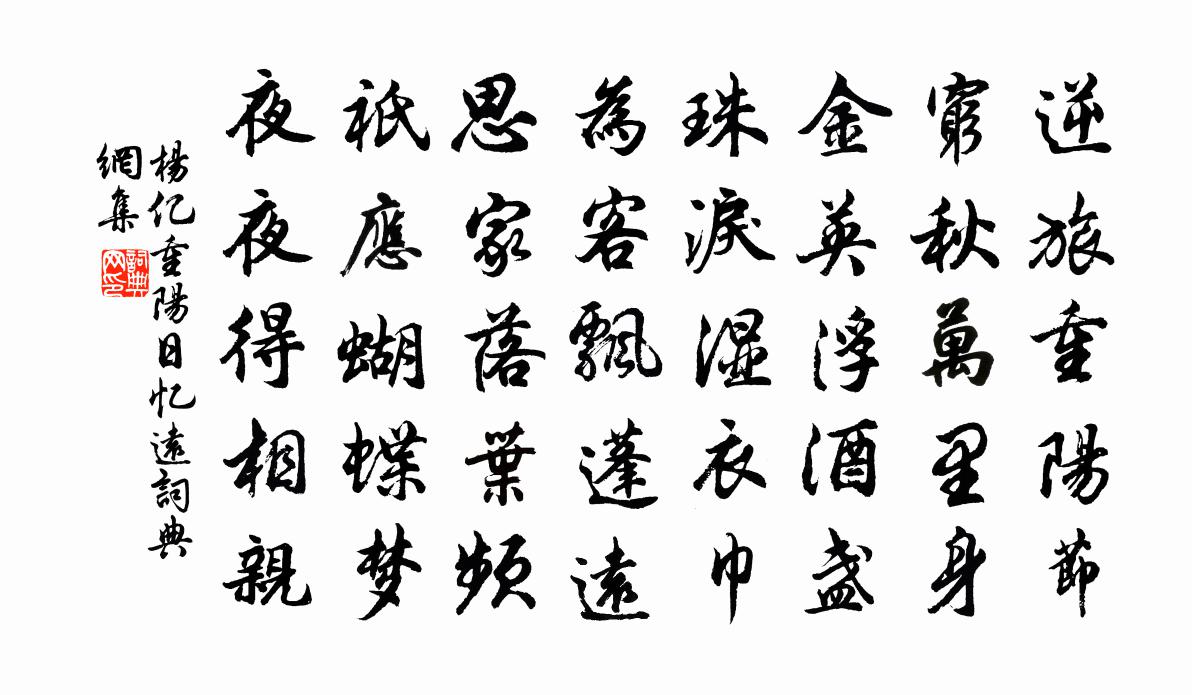 逆旅重陽節
窮秋萬里身
金英浮酒盞
珠淚濕衣巾
為客飄蓬遠
思家落葉頻
祇應蝴蝶梦
夜夜得相親
楊亿重陽日忆遠詞典
網集
詞典网印